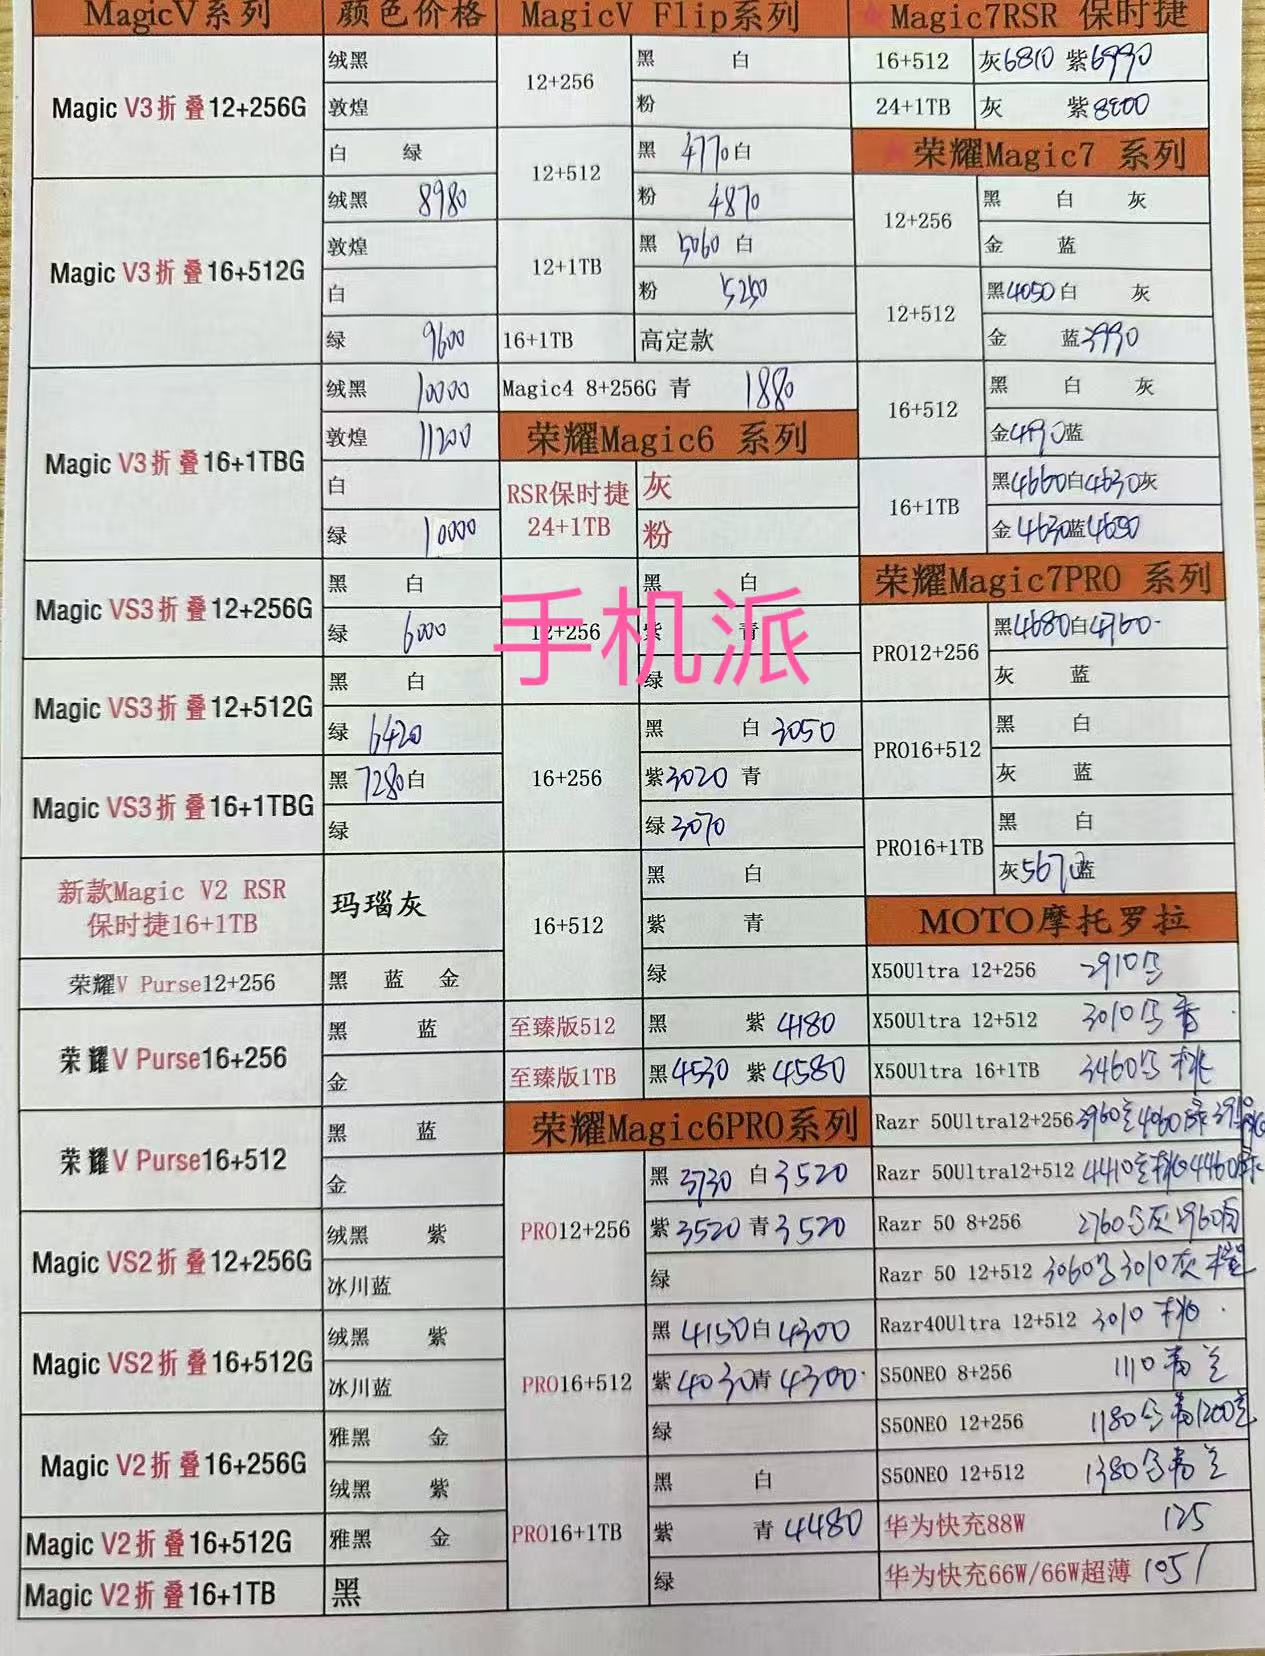 MagicV系列 颜色价格
Magic V3折叠12+256G 绒黑
敦煌
白 绿
Magic V3折叠16+512G 绒黑 8980
敦煌
白
绿 9600
Magic V3折叠16+1TBG 绒黑 10000
敦煌 11200
白
绿 10000
Magic VS3折叠12+256G 黑 白
绿 6000
Magic VS3折叠12+512G 黑 白
绿 6420
Magic VS3折叠16+1TBG 黑 7280 白
绿
新款Magic V2 RSR
保时捷16+1TB 玛瑙灰
荣耀V Purse12+256 黑 蓝 金
荣耀V Purse16+256 黑 蓝
金
荣耀V Purse16+512 黑 蓝
金
Magic VS2折叠12+256G 绒黑 紫
冰川蓝
Magic VS2折叠16+512G 绒黑 紫
冰川蓝
Magic V2折叠16+256G 雅黑 金
绒黑 紫
Magic V2折叠16+512G 雅黑 金
Magic V2折叠16+1TB 黑
MagicV Flip系列
12+256 黑 白
粉
12+512 黑 4770 白
粉 4870
12+1TB 黑 5060 白
粉 5250
16+1TB 高定款
Magic4 8+256G 青 1880
荣耀Magic6 系列
RSR保时捷
24+1TB 灰
粉
12+256 黑 白
紫 青
绿
手机派
16+256 黑 白 3050
紫 3020 青
绿 3070
16+512 黑 白
紫 青
绿
至臻版512 黑 紫 4180
至臻版1TB 黑 4530 紫 4580
荣耀Magic6PRO系列
PRO12+256 黑 3730 白 3520
紫 3520 青 3520
绿
PRO16+512 黑 4150 白 4300
紫 4030 青 4300
绿
PRO16+1TB 黑 白
紫 青 4480
绿
Magic7RSR 保时捷
16+512 灰 6810 紫 6990
24+1TB 灰 紫
荣耀Magic7 系列
12+256 黑 白 灰
金 蓝
12+512 黑 4050 白 灰
金 蓝 3990
16+512 黑 白 灰
金 蓝
16+1TB 黑 4660 白 4630 灰
金 4630 蓝
荣耀Magic7PRO 系列
PRO12+256 黑 4680 白 4760
灰 蓝
PRO16+512 黑 白
灰 蓝
PRO16+1TB 黑 白
灰 5670 蓝
MOTO摩托罗拉
X50Ultra 12+256 2910
X50Ultra 12+512 3010
X50Ultra 16+1TB 3460
Razr 50Ultra12+256 3960 4060
Razr 50Ultra12+512 4410 4460
Razr 50 8+256 2760 灰 2960
Razr 50 12+512 3060 3010 灰
Razr40Ultra 12+512 3010
S50NEO 8+256 1110 兰
S50NEO 12+256 1180 1200
S50NEO 12+512 1380 兰
华为快充88W 125
华为快充66W/66W超薄 105